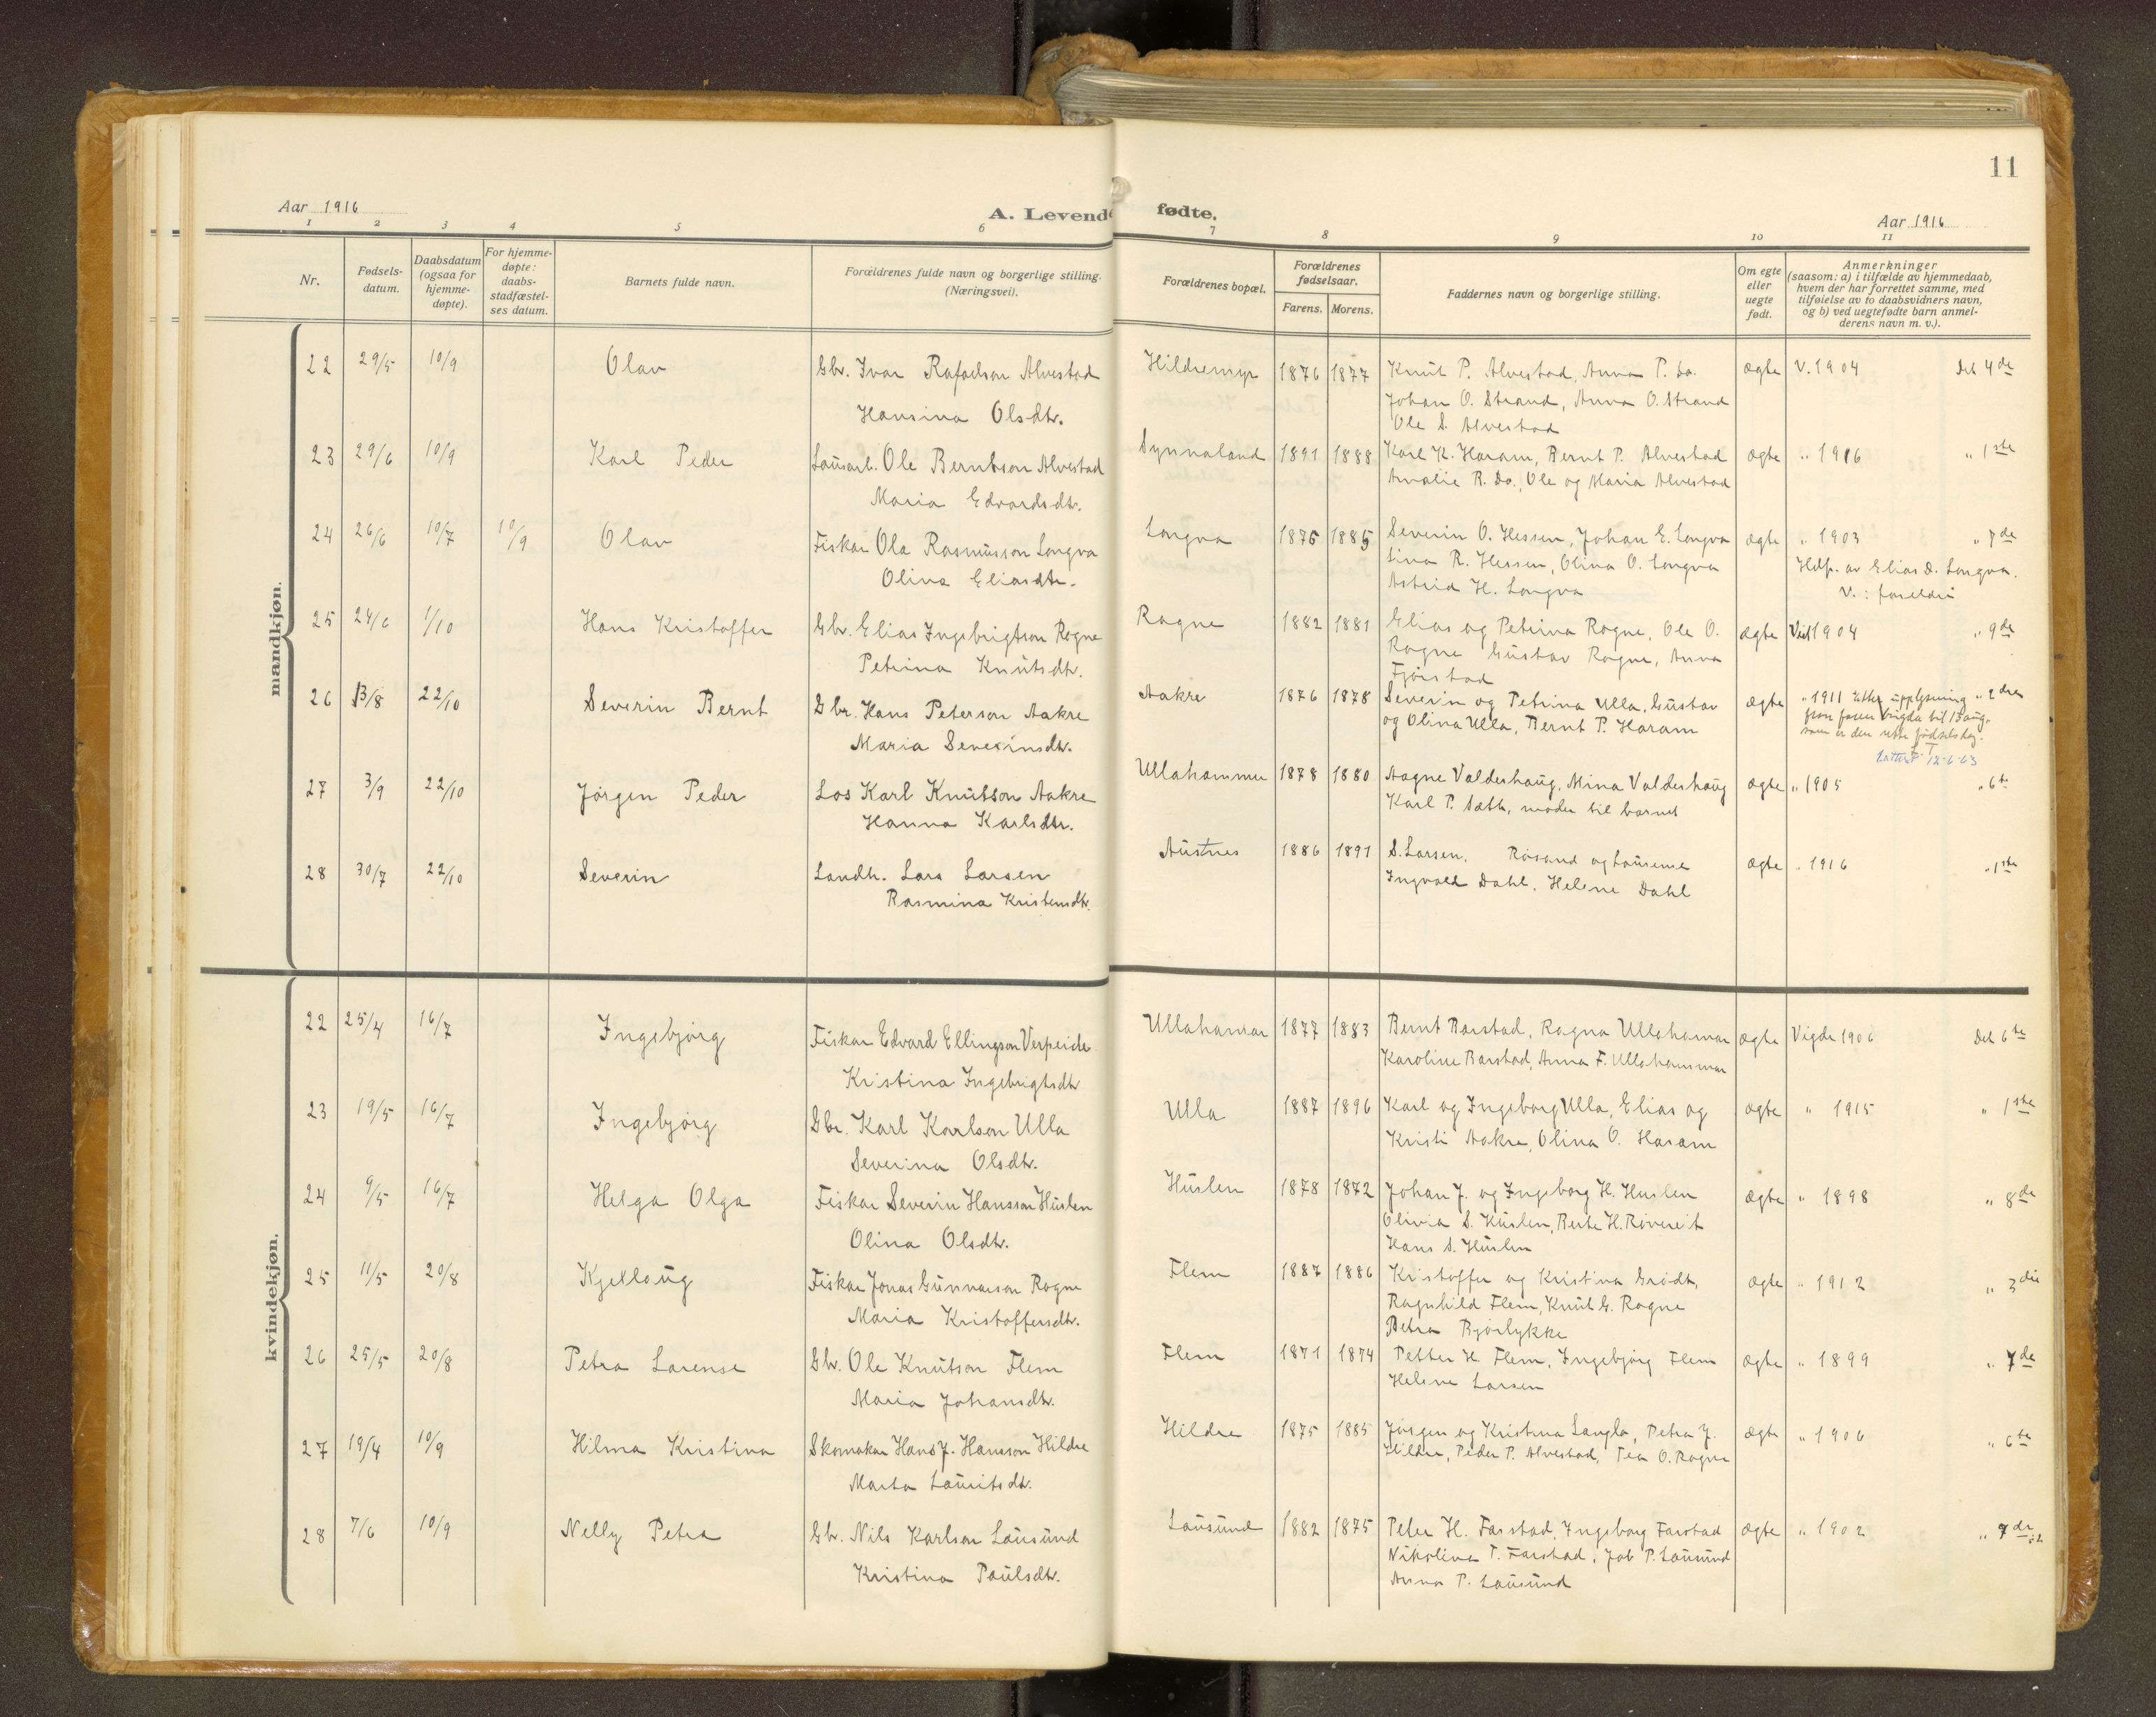 11
Aar 1916
A. Levende fødte.
Aar 1916
1 2 3 4 5 6 7 8 9 10 11
Nr.
Fødsels-
datum.
Daabsdatum
(ogsaa for
hjemme-
døpte).
For hjemme-
døpte:
daabs-
stadfæstel-
ses datum.
Barnets fulde navn.
Forældrenes fulde navn og borgerlige stilling.
(Næringsvei).
Forældrenes bopæl.
Forældrenes
fødselsaar.
Farens. Morens.
Faddernes navn og borgerlige stilling.
Om egte
eller
uegte
født.
Anmerkninger
(saasom: a) i tilfælde av hjemmedaab,
hvem der har forrettet samme, med
tilføielse av to daabsvidners navn,
og b) ved uegtefødte barn anmel-
derens navn m. v.).
mandkjøn.
22 29/5 10/9 Olav Gbr. Ivar Rafaelson Alvestad Hildremyr 1876 1877 Knut P. Alvestad, Anna P. do. ægte V. 1904 Det 4de
Hansina Olsdtr. Johan O. Strand, Anna O. Strand
Ole S. Alvestad
23 29/6 10/9 Karl Peder Lausarb. Ole Berntson Alvestad Synnaland 1891 1888 Karl K. Haram, Bernt P. Alvestad ægte " 1916 " 1ste
Maria Edvardsdtr. Amalie R. Do., Ole og Maria Alvestad
24 26/6 10/7 10/9 Olav Fiskar Ola Rasmusson Longva Longva 1876 1885 Severin O. Hessen, Johan E. Longva ægte " 1903 " 7de
Olina Eliasdtr. Lina R. Hessen, Olina O. Longva Hdp. av Elias D. Longva.
Astrid H. Longva V.: foreldri
25 24/6 1/10 Hans Kristoffer Gbr. Elias Ingebrigtson Rogne Rogne 1882 1881 Elias og Petrina Rogne, Ole O. ægte Vied 1904 " 9de
Petrina Knutsdtr. Rogne Gustav Rogne, Anna
Fjørstad
26 13/8 22/10 Severin Bernt Gbr. Hans Peterson Aakre Aakre 1876 1878 Severin og Petrina Ulla, Gustav ægte " 1911 Etter upplysning " 2dre
Maria Severinsdtr. og Olina Ulla, Bernt P. Haram fraa faren brigda til 13 aug.
som er den rette fødselsdag.
12-6-63
27 3/9 22/10 Jørgen Peder Los Karl Knutson Aakre Ullahammer 1878 1880 Aagne Valderhaug, Mina Valderhaug ægte " 1905 " 6te
Hanna Karlsdtr. Karl P. Sætt, moder til barnet
28 30/7 22/10 Severin Landh. Lars Larsen Austnes 1886 1891 S. Larsen, Røsand og Laurense ægte " 1916 " 1ste
Rasmina Kristensdtr. Ingvald Dahl, Helene Dahl
kvindekjøn.
22 25/4 16/7 Ingebjørg Fiskar Edvard Ellingson Verpeide Ullahamar 1877 1883 Bernt Barstad, Ragna Ullahamar ægte Vigde 1906 Det 6te
Kristina Ingebrigtsdtr Karoline Barstad, Anna F. Ullahammar
23 19/5 16/7 Ingebjørg Gbr. Karl Karlson Ulla Ulla 1887 1896 Karl og Ingeborg Ulla, Elias og ægte " 1915 " 1ste
Severina Olsdtr. Kristi Aakre, Olina O. Haram
24 9/5 16/7 Helga Olga Fiskar Severin Hansson Huslen Huslen 1878 1872 Johan J. og Ingeborg H. Huslen ægte " 1898 " 8de
Olina Olsdtr. Olivia S. Huslen, Berte H. Røvereit
Hans S. Huslen
25 11/5 20/8 Kjellaug Fiskar Jonas Gunnarson Rogne Flem 1887 1886 Kristoffer og Kristina Grødt, ægte " 1912 " 3die
Maria Kristoffersdtr. Ragnhild Flem, Knut G. Rogne
Petra Bjørlykke
26 25/5 20/8 Petra Larense Gbr. Ole Knutson Flem Flem 1871 1874 Petter H. Flem, Ingebjørg Flem ægte " 1899 " 7de
Maria Johansdtr. Helene Larsen
27 19/4 10/9 Hilma Kristina Skomakar Hans J. Hansson Hildre Hildre 1875 1885 Jørgen og Kristina Langlo, Petra J. ægte " 1906 " 6te
Marta Lauritsdtr. Hildre, Peder P. Alvestad, Tea O. Rogne
28 7/6 10/9 Nelly Petra Gbr. Nils Karlson Lausund Lausund 1882 1875 Peter H. Farstad, Ingeborg Farstad ægte " 1902 " 7de
Kristina Paulsdtr. Nikolina T. Farstad, Jak P. Lausund
Anna P. Lausund